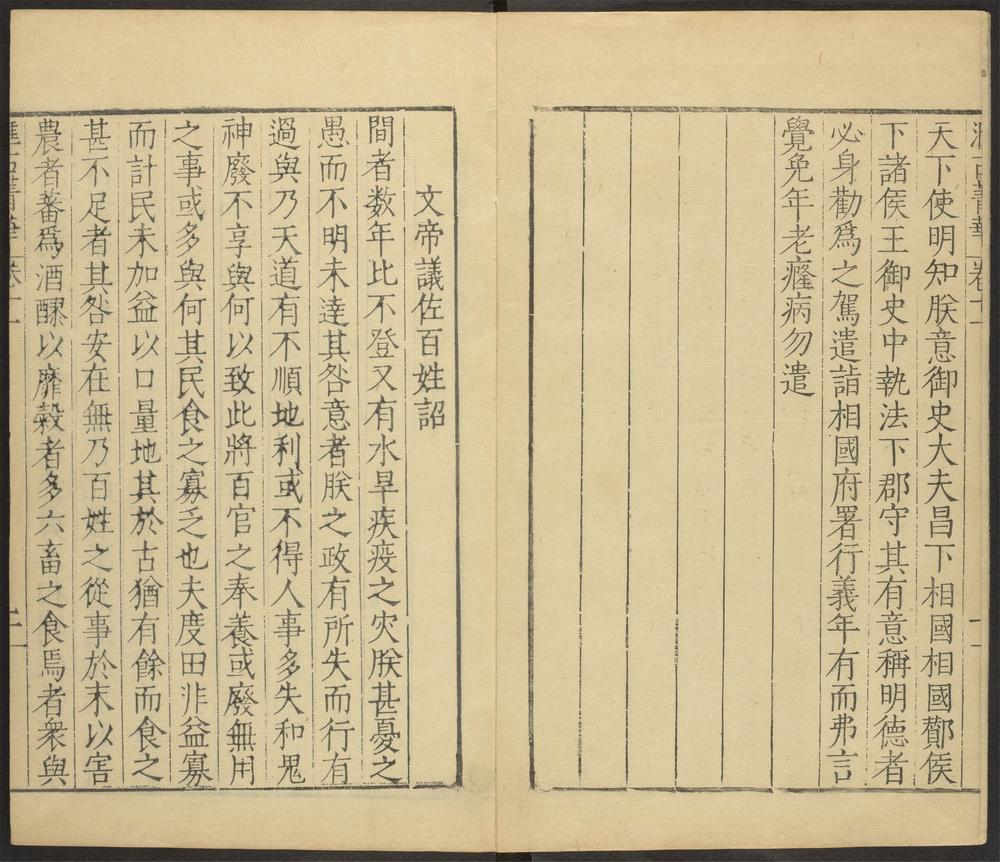 天下使明知朕意御史大夫昌下相國相國酇侯
下諸侯王御史中執法下郡守其有意稱明德者
必身勸爲之駕遣詣相國府署行義年有而弗言
覺免年老癃病勿遣
文帝議佐百姓詔
間者数年比不登又有水旱疾疫之灾朕甚憂之
愚而不明未達其咎意者朕之政有所失而行有
過與乃天道有不順地利或不得人事多失和鬼
神廢不享與何以致此將百官之奉養或廢無用
之事或多與何其民食之寡乏也夫度田非益寡
而計民未加益以口量地其於古猶有餘而食之
甚不足者其咎安在無乃百姓之從事於末以害
農者蕃爲酒醪以靡穀者多六畜之食焉者衆與